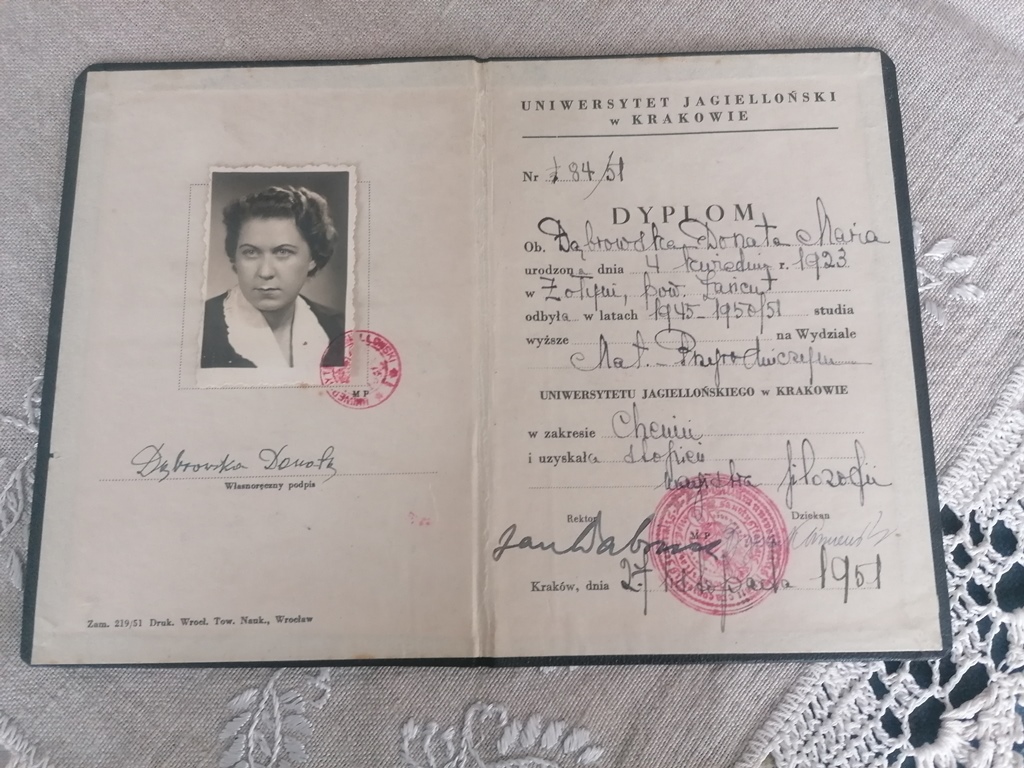 MP
Dąbrowska Donata
Własnoręczny podpis
Zam. 219/51 Druk. Wrocł. Tow. Nauk., Wrocław
UNIWERSYTET JAGIELLOŃSKI
w KRAKOWIE
Nr 184/51
DYPLOM
Ob. Dąbrowska Donata Maria
urodzona dnia 4 kwietnia r. 1923
w Żołyni, pow. Łańcut
odbyła w latach 1945-1950/51 studia
wyższe na Wydziale
Mat. Przyrodniczym
UNIWERSYTETU JAGIELLOŃSKIEGO w KRAKOWIE
w zakresie Chemii
i uzyskała stopień
magistra filozofii
Rektor Dziekan
Kraków, dnia 27 listopada 1951